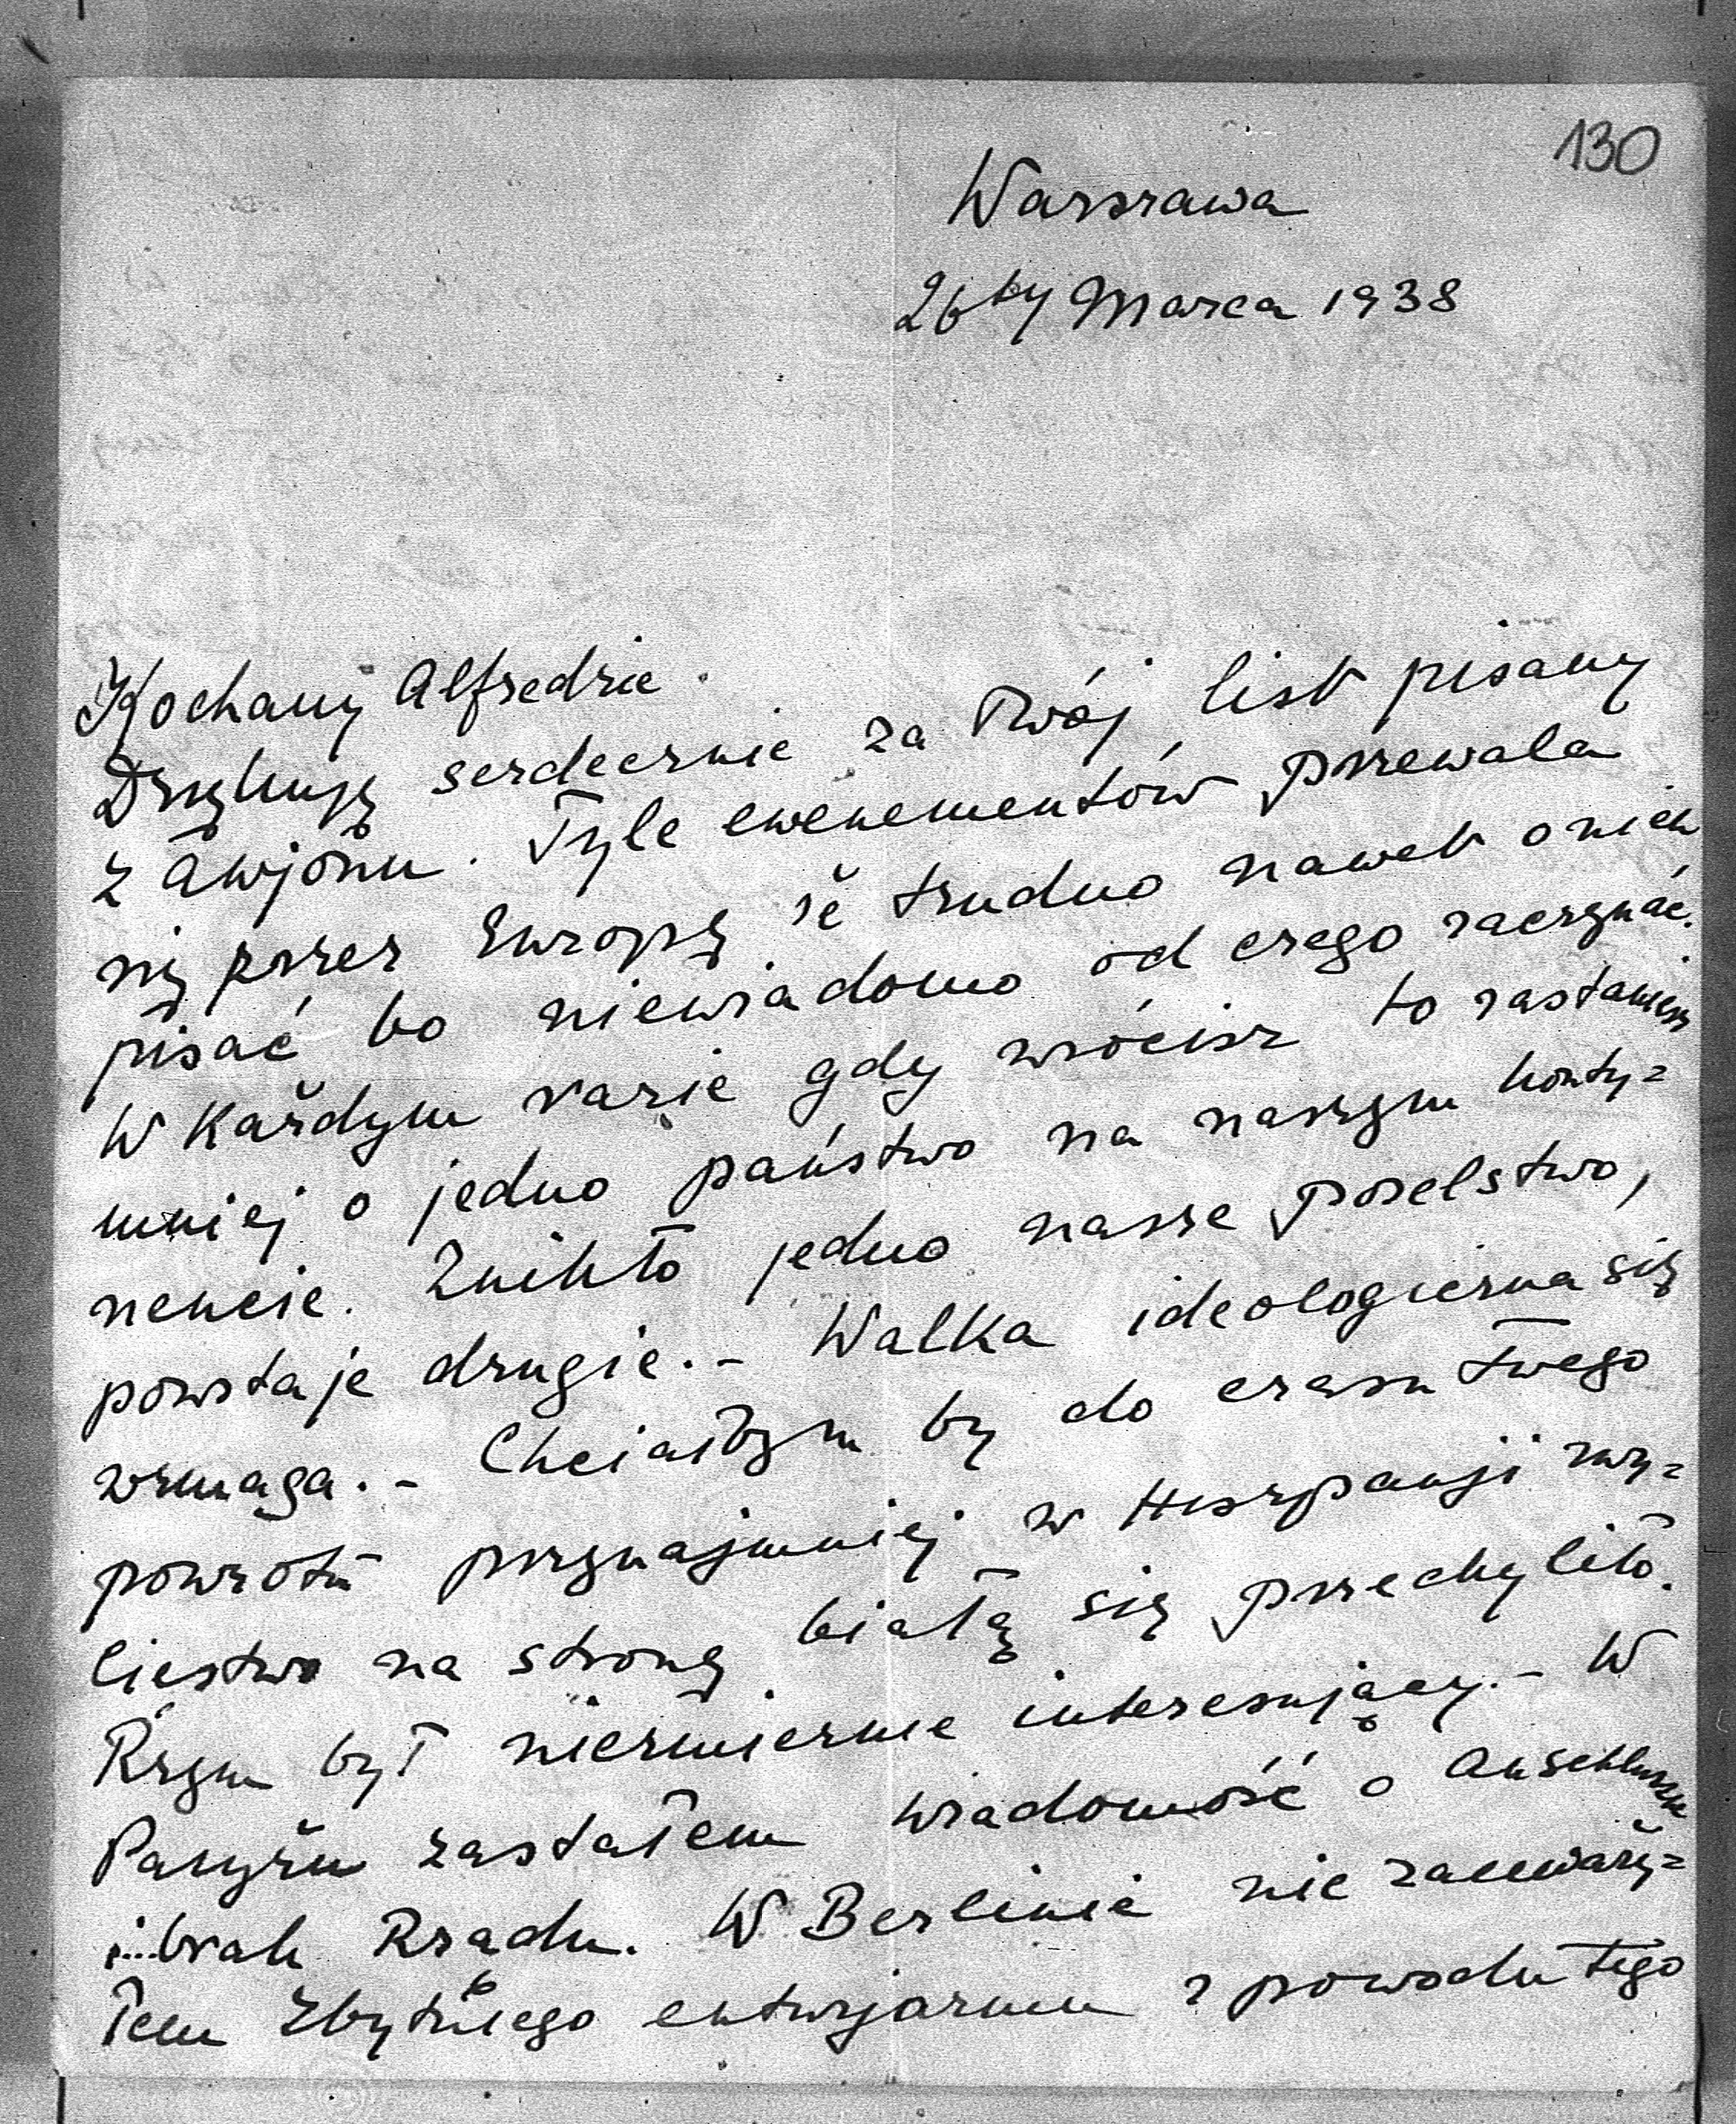 130
Warszawa
26ty Marca 1938
Kochany Alfredzie.
Dziękuję serdecznie za Twój list pisany
z Awjonu. Tyle ewenementów przewala
się przez Europę, że trudno nawet o nich
pisać bo niewiadomo od czego zacząć.
W każdym razie gdy wrócisz to zastaniesz
mniej o jedno państwo na naszym konty=
nencie. Znikło jedno nasze poselstwo,
powstaje drugie.- Walka ideologiczna się
wzmaga.- Chciałbym by do czasu Twego
powrotu przynajmniej w Hiszpanji zwy=
cięstwo na stronę białą się przechyliło.
Rzym był niezmiernie interesujący.- W
Paryżu zastałem wiadomość o Anschlusse
i...brak Rządu. W Berlinie nie zauważy=
łem zbytniego entuzjazmu z powodu tego